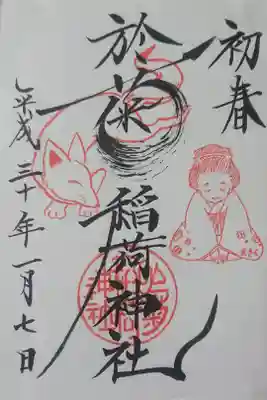 初春
於菊稲荷神社
平成三十年一月七日